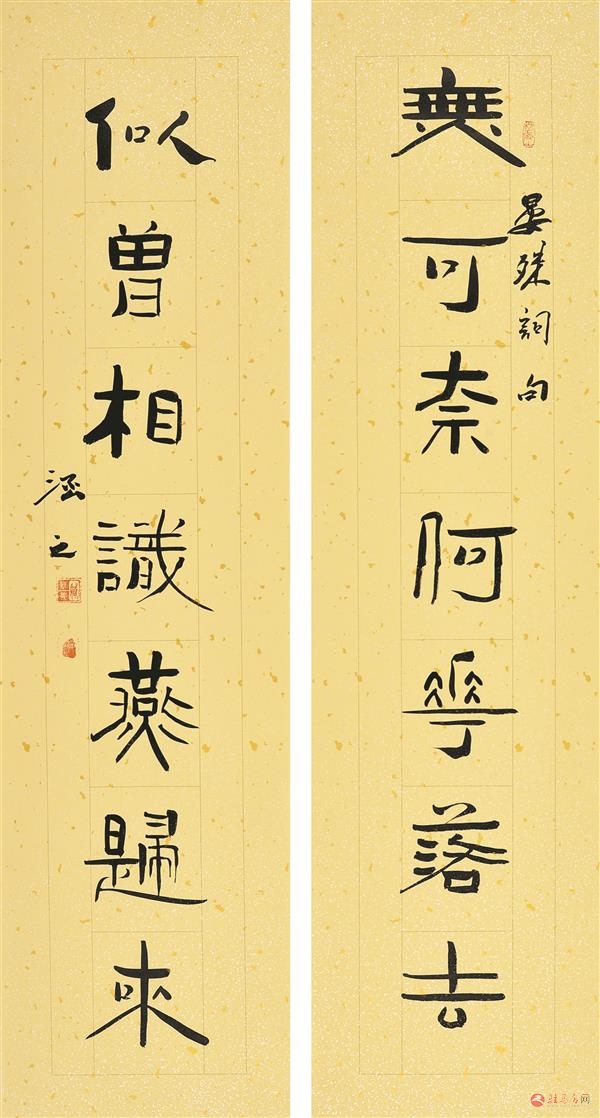 無可奈何花落去
晏殊詞句
似曾相識燕歸來
涵之
驻马店网